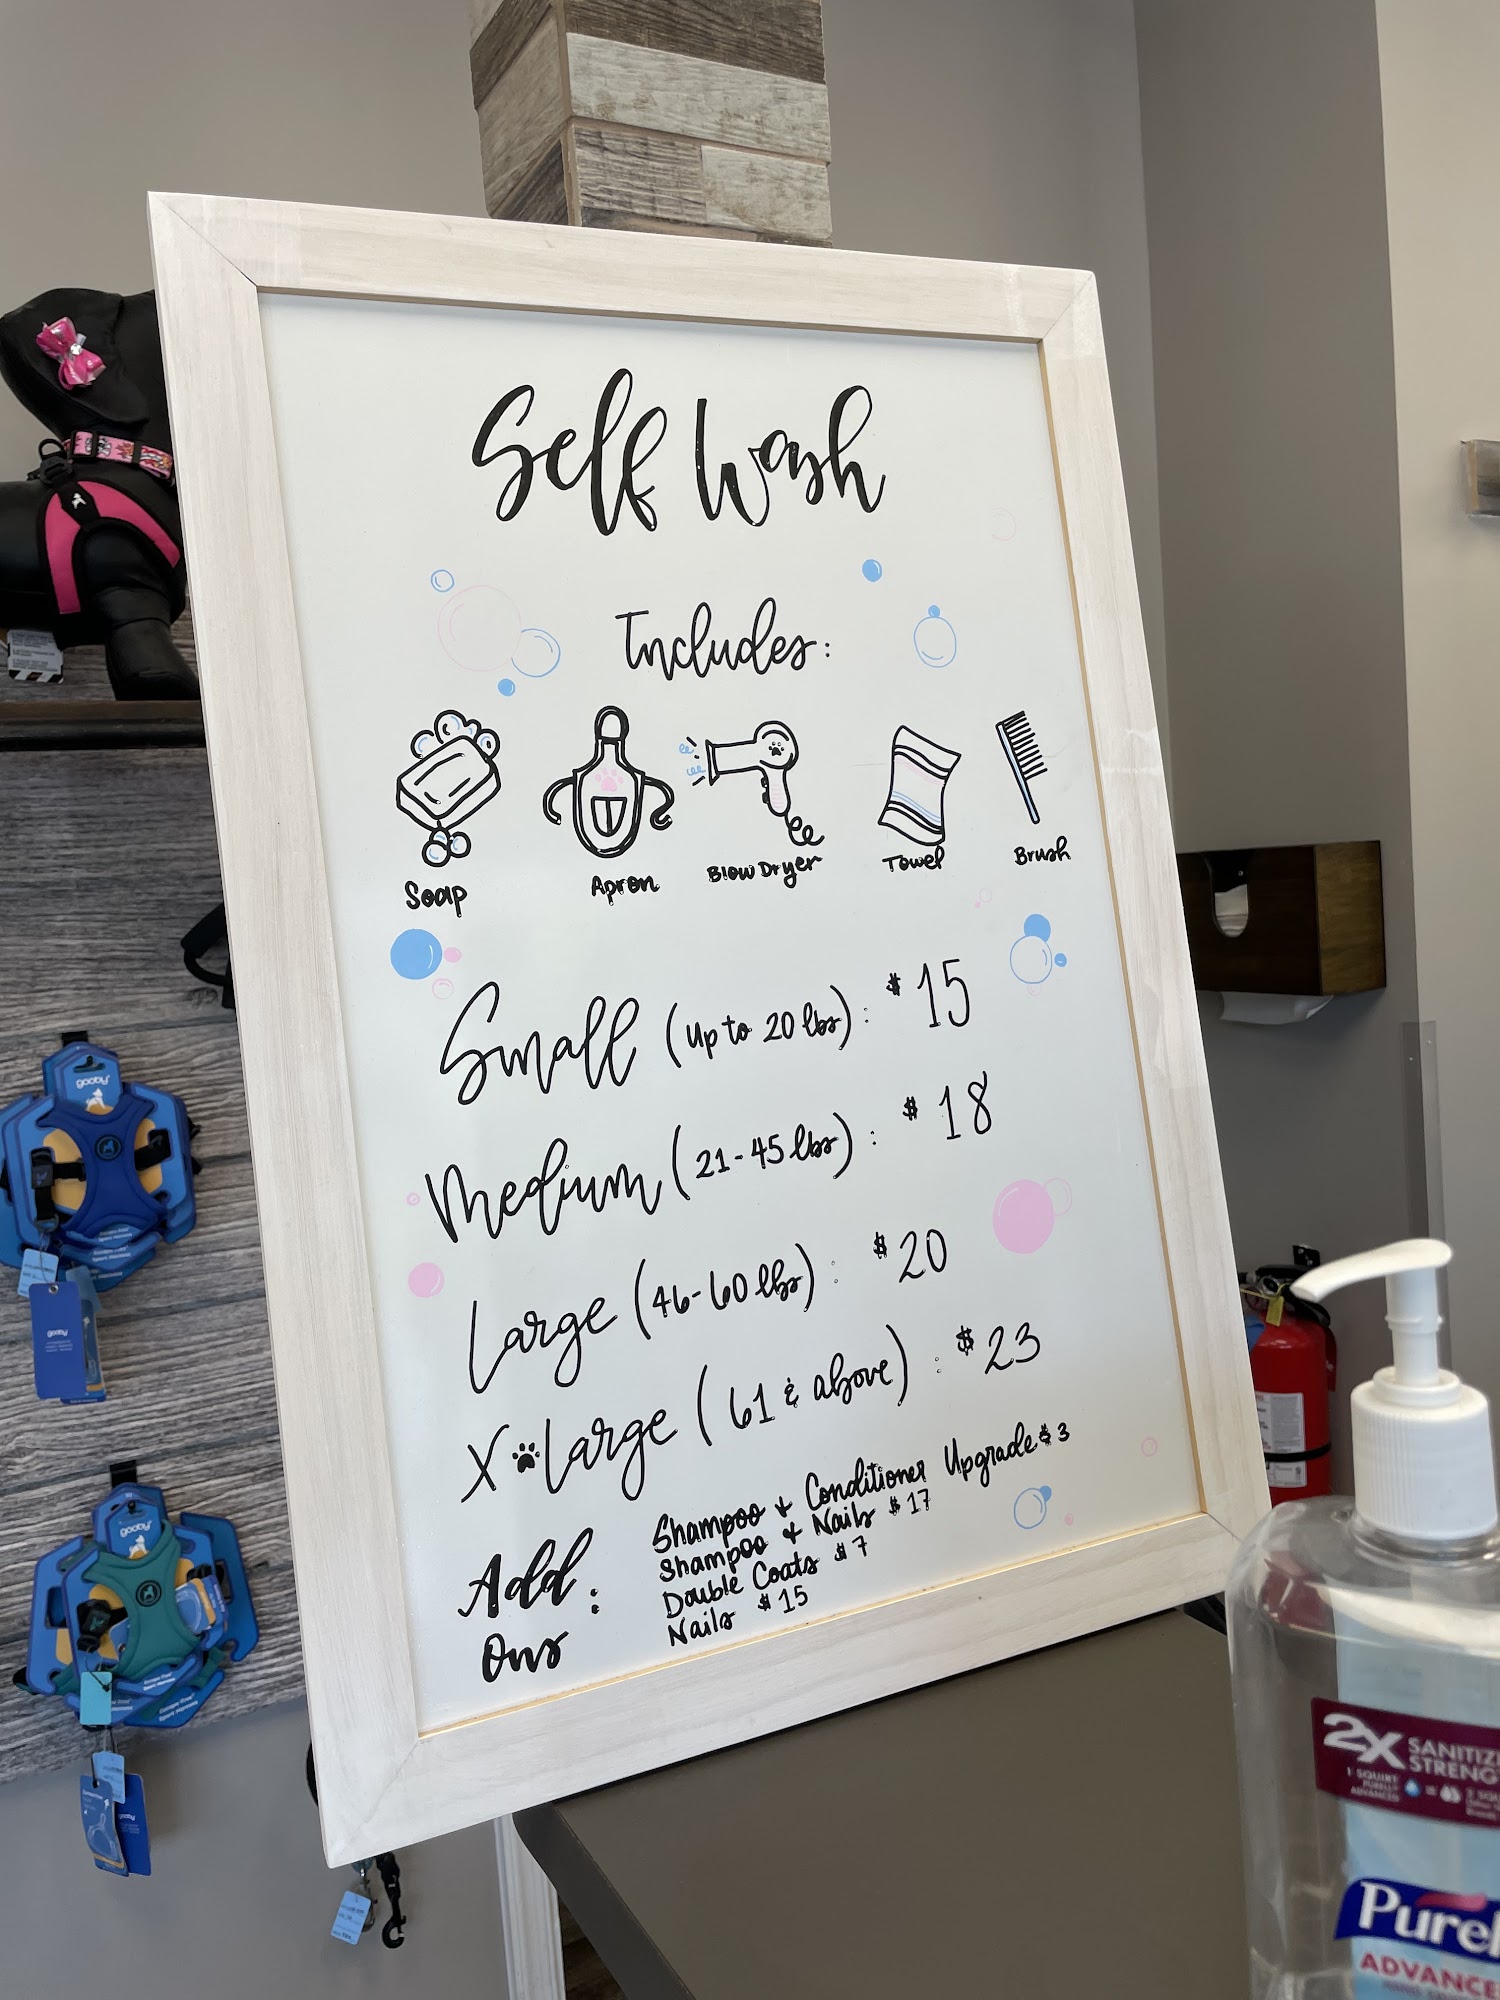 Self Wash
Includes:
Soap Apron Blow Dryer Towel Brush
Small (up to 20 lbs): $15
Medium (21-45 lbs): $18
Large (46-60 lbs): $20
X Large (61 & above): $23
Add Ons:
Shampoo + Conditioner Upgrade $3
Shampoo + Nails $17
Double Coats $7
Nails $15
gooby
gooby
gooby
2X SANITIZI
STRENG
1 SQUIRT
PURELL
ADVANCED
Purel
ADVANCE